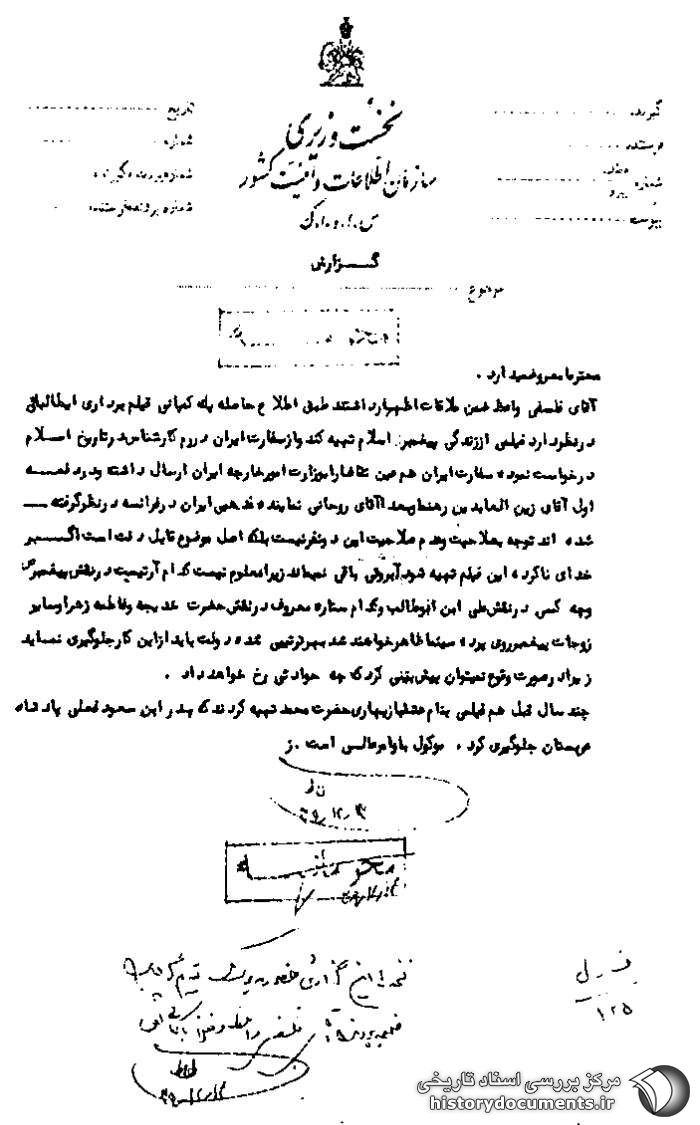 نخست وزیری
سازمان اطلاعات و امنیت کشور
س.ا.و.ا.ک
گیرنده
فرستنده
شماره
پیوست
تاریخ
شماره
شماره پرونده گیرنده
شماره پرونده فرستنده
گزارش
موضوع
محترما معروضمیدارد .
آقای فلسفی واعظ ضمن ملاقات اظهار داشتند طبق اطلاع حاصله یک کمپانی فیلم برداری ایطالیائی
در نظر دارد فیلمی از زندگی پیغمبر اسلام تهیه کند و از سفارت ایران در روم کارشناس در تاریخ اسلام
درخواست نموده سفارت ایران هم عین تقاضا را بوزارت امور خارجه ایران ارسال داشته و در دفعه
اول آقای زین العابدین رهنما و بعدا آقای روحانی نماینده مذهبی ایران در فرانسه در نظر گرفته
شده اند توجه بصلاحیت و عدم صلاحیت این دو نفر نیست بلکه اصل موضوع قابل دقت است اگر
خدای ناکرده این فیلم تهیه شود آبروئی باقی نمیماند زیرا معلوم نیست کدام آرتیست در نقش پیغمبر
وچه کسی در نقش علی ابن ابوطالب وکدام ستاره معروف در نقش حضرت خدیجه وفاطمه زهرا وسایر
زوجات پیغمبر روی پرده سینما ظاهر خواهند شد بهر ترتیبی شده دولت باید از این کار جلوگیری نماید
زیرا در صورت وقوع نمیتوان پیش بینی کرد که چه حوادثی رخ خواهد داد .
چند سال قبل هم فیلمی بنام عشقبازیهای حضرت محمد تهیه کردند که پدر ابن سعود فعلی پادشاه
عربستان جلوگیری کرد . موکول باوامر عالی است . ز
این گزارش
فلسفی واعظ
۱۲۵
مرکز بررسی اسناد تاریخی
historydocuments.ir